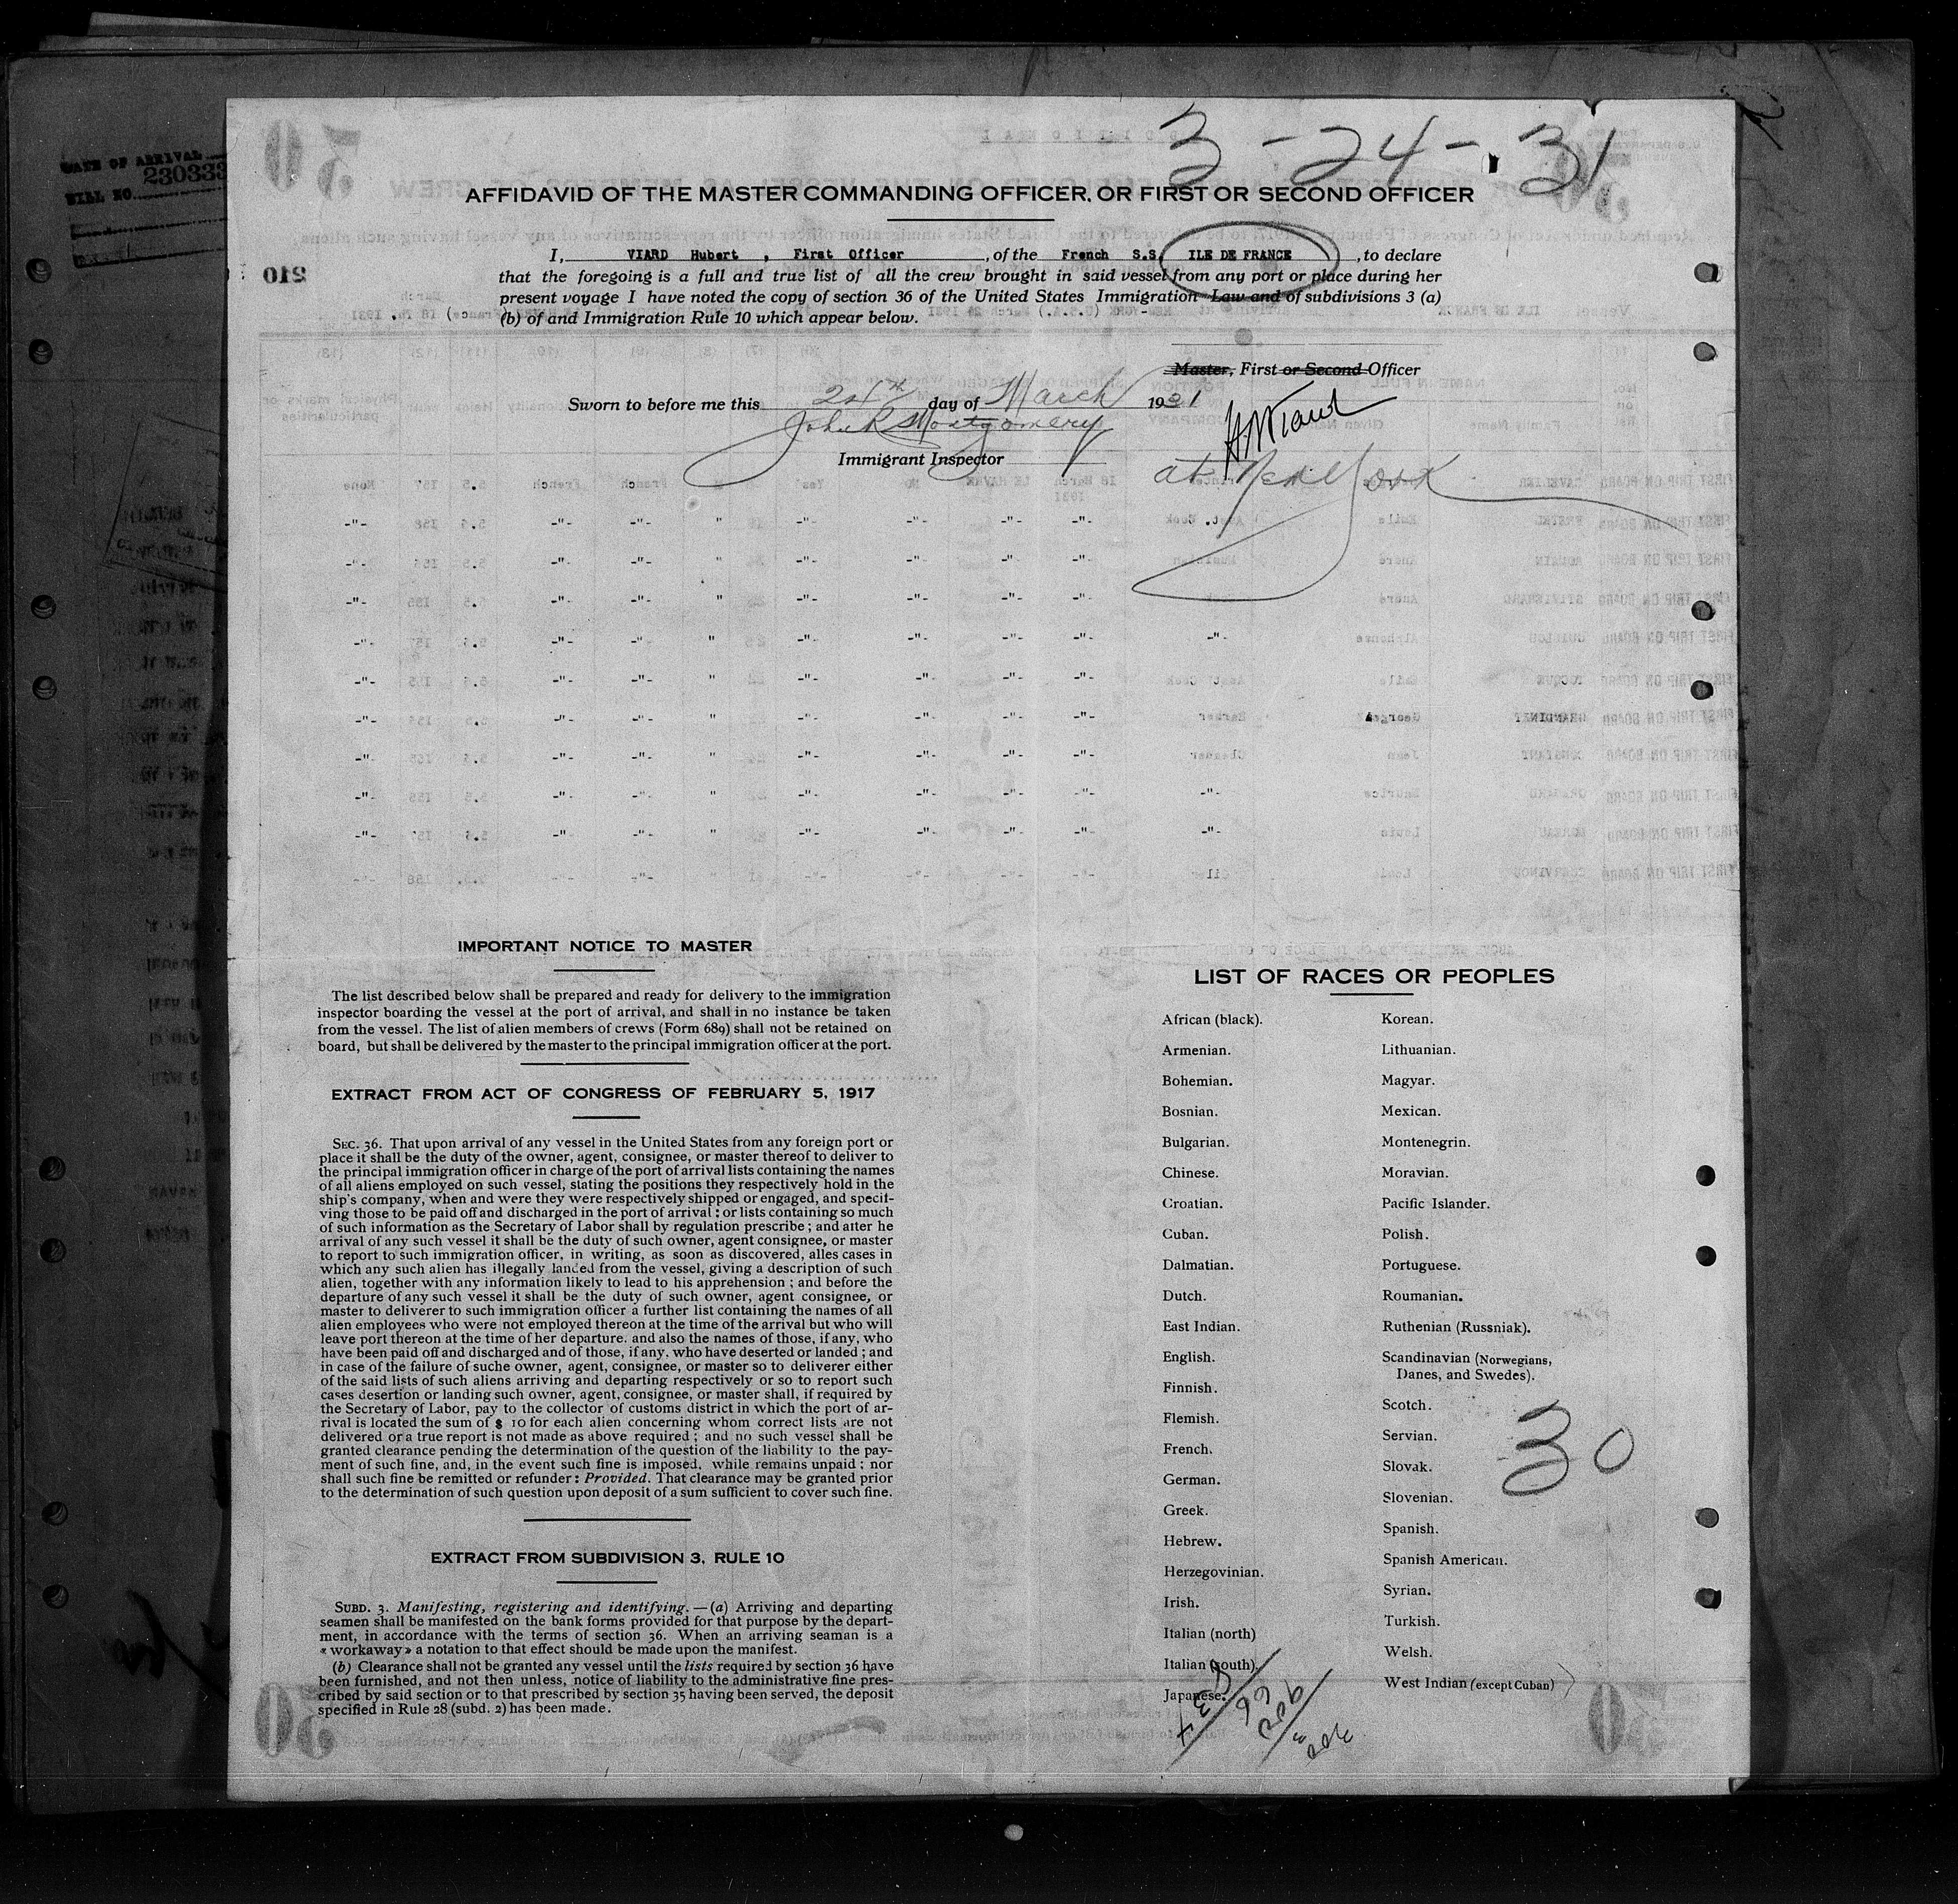 3-24-31
DATE OF ARRIVAL
BILL NO.
230333
AFFIDAVID OF THE MASTER COMMANDING OFFICER, OR FIRST OR SECOND OFFICER
I, VIARD Hubert , First Officer , of the French S.S. ILE DE FRANCE , to declare
that the foregoing is a full and true list of all the crew brought in said vessel from any port or place during her
present voyage I have noted the copy of section 36 of the United States Immigration Law and of subdivisions 3 (a)
(b) of and Immigration Rule 10 which appear below.
Master, First or Second Officer
Sworn to before me this 24th day of March 1931
John R Montgomery
H Viard
Immigrant Inspector
at New York
IMPORTANT NOTICE TO MASTER
The list described below shall be prepared and ready for delivery to the immigration
inspector boarding the vessel at the port of arrival, and shall in no instance be taken
from the vessel. The list of alien members of crews (Form 689) shall not be retained on
board, but shall be delivered by the master to the principal immigration officer at the port.
EXTRACT FROM ACT OF CONGRESS OF FEBRUARY 5, 1917
SEC. 36. That upon arrival of any vessel in the United States from any foreign port or
place it shall be the duty of the owner, agent, consignee, or master thereof to deliver to
the principal immigration officer in charge of the port of arrival lists containing the names
of all aliens employed on such vessel, stating the positions they respectively hold in the
ship's company, when and were they were respectively shipped or engaged, and specit-
ving those to be paid off and discharged in the port of arrival ; or lists containing so much
of such information as the Secretary of Labor shall by regulation prescribe ; and atter he
arrival of any such vessel it shall be the duty of such owner, agent consignee, or master
to report to such immigration officer, in writing, as soon as discovered, alles cases in
which any such alien has illegally landed from the vessel, giving a description of such
alien, together with any information likely to lead to his apprehension ; and before the
departure of any such vessel it shall be the duty of such owner, agent consignee, or
master to deliverer to such immigration officer a further list containing the names of all
alien employees who were not employed thereon at the time of the arrival but who will
leave port thereon at the time of her departure. and also the names of those, if any, who
have been paid off and discharged and of those, if any. who have deserted or landed ; and
in case of the failure of suche owner, agent, consignee, or master so to deliverer either
of the said lists of such aliens arriving and departing respectively or so to report such
cases desertion or landing such owner, agent, consignee, or master shall, if required by
the Secretary of Labor, pay to the collector of customs district in which the port of ar-
rival is located the sum of $ 10 for each alien concerning whom correct lists are not
delivered or a true report is not made as above required ; and no such vessel shall be
granted clearance pending the determination of the question of the liability to the pay-
ment of such fine, and, in the event such fine is imposed, while remains unpaid ; nor
shall such fine be remitted or refunder : Provided. That clearance may be granted prior
to the determination of such question upon deposit of a sum sufficient to cover such fine.
EXTRACT FROM SUBDIVISION 3, RULE 10
SUBD. 3. Manifesting, registering and identifying. — (a) Arriving and departing
seamen shall be manifested on the bank forms provided for that purpose by the depart-
ment, in accordance with the terms of section 36. When an arriving seaman is a
« workaway » a notation to that effect should be made upon the manifest.
(b) Clearance shall not be granted any vessel until the lists required by section 36 have
been furnished, and not then unless, notice of liability to the administrative fine pres-
cribed by said section or to that prescribed by section 35 having been served, the deposit
specified in Rule 28 (subd. 2) has been made.
LIST OF RACES OR PEOPLES
African (black).
Armenian.
Bohemian.
Bosnian.
Bulgarian.
Chinese.
Croatian.
Cuban.
Dalmatian.
Dutch.
East Indian.
English.
Finnish.
Flemish.
French.
German.
Greek.
Hebrew.
Herzegovinian.
Irish.
Italian (north)
Italian (south).
Japanese.
Korean.
Lithuanian.
Magyar.
Mexican.
Montenegrin.
Moravian.
Pacific Islander.
Polish.
Portuguese.
Roumanian.
Ruthenian (Russniak).
Scandinavian (Norwegians,
Danes, and Swedes).
Scotch.
Servian.
Slovak.
Slovenian.
Spanish.
Spanish American.
Syrian.
Turkish.
Welsh.
West Indian (except Cuban)
30